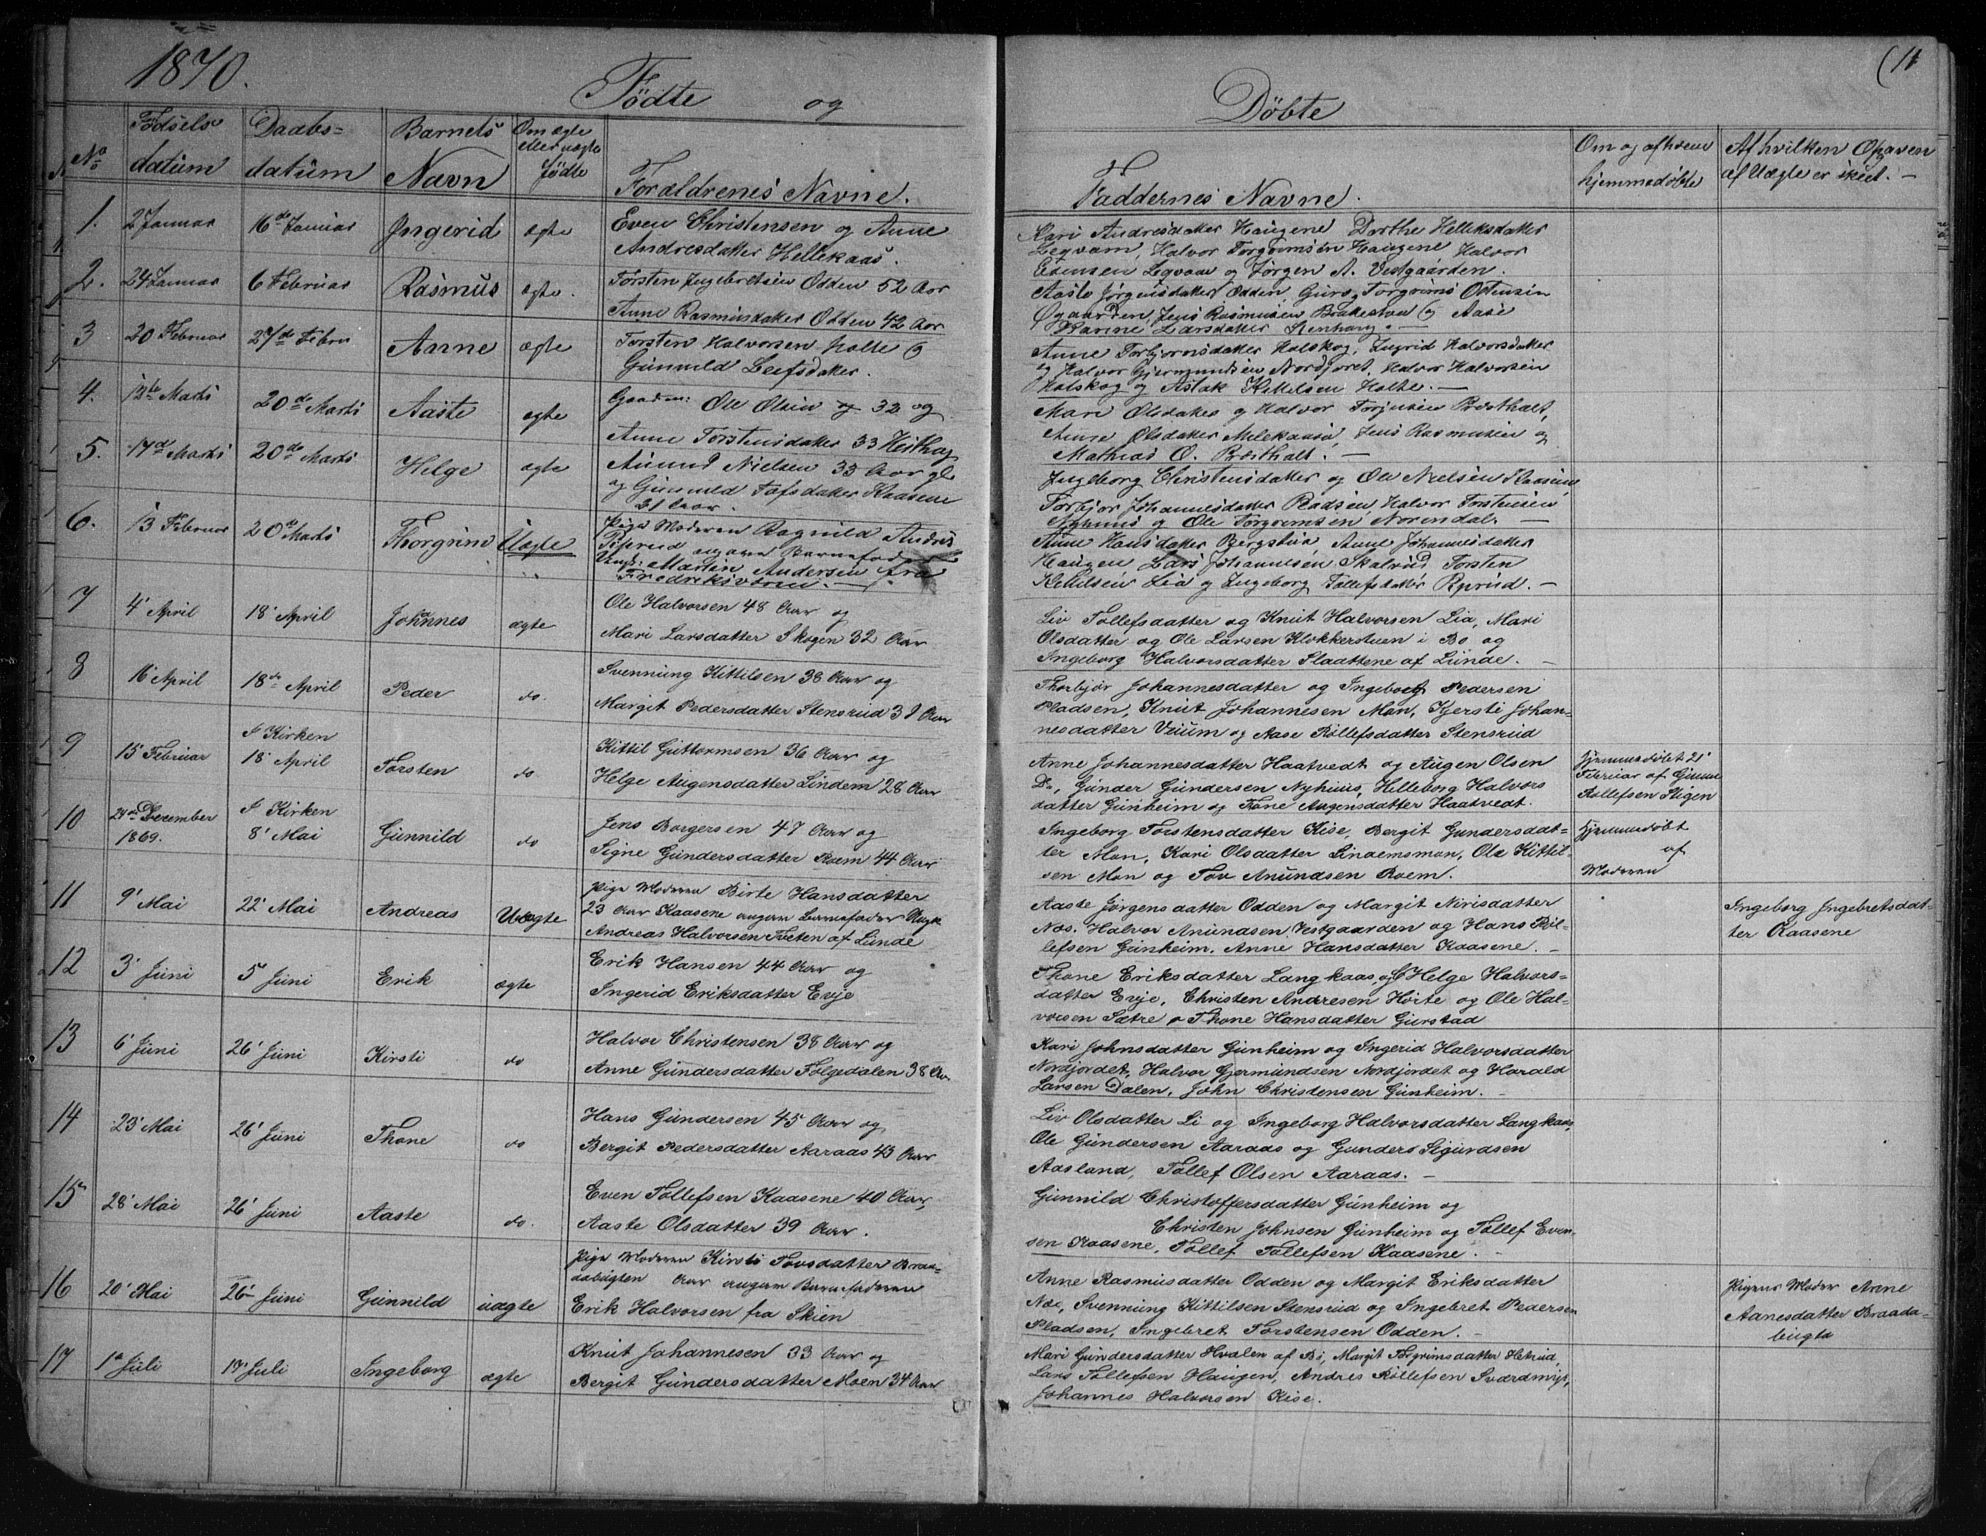 1870.
Fødte og Døbte
(11
No
Fødsels datum
Daabs= datum
Barnets Navn
Om ægte eller uægte Fødte
Forældrenes Navne.
Faddernes Navne.
Om og af hvem hjemmedøbte
Af hvilken Opgaven af Uægte er skeet. —
1. 2 Januar 16de Januar Ingerid ægte
Even Christensen og Anne
Andresdatter Hellekaas.
Kari Andresdatter Haugene Dorthe Helleksdatter
Legvam, Halvor Torgrimsen Haugene Halvor
Edensen Legvam og Jørgen A. Vestgaarden.
2. 24 Januar 6 Februar Rasmus ægte.
Torsten Ingebretsen Odden 52 Aar
Anne Rasmusdatter Odden 42 Aar
Aaste Jørgensdatter Odden, Guro, Torgrims Ostensen
Øgaarden, Jens Rasmusen Brekestul og Aase
Karine Larsdatter Stenhaug. —
3 20 Februar 27de Febru Anne ægte
Torsten Halvorsen Holte og
Gunnild Leifsdatter.
Anne Torbjornsdatter Holskog, Ingrid Halvorsdatter
og Halvor Gjermundsen Nordjoret, Halvor Halvorsen
Holskog og Aslak Kittelsen Holte. —
4. 12te Marts 20de Marts Aaste ægte
Gaaden: Ole Olsen og 32 og
Anne Torstensdatter 33 Heithag
Mari Olsdatter og Halvor Torjusen Brosthalt,
Anne Olsdatter Melekaasa, Jens Rasmusen og
Mathias O. Brosthalt. —
5. 17de Marts 20de Marts Helge ægte
Anund Nielsen 35 Aar gl
og Gunnild Tofsdatter Kaasene
31 Aar.
Ingeborg Christensdatter og Ole Nielsen Kaasene
Torbjor Johannesdatter Pladsen, Halvor Torstensen
Nyhuus og Ole Torgrimsen Norendal. —
6. 13 Februar 20de Marts Thorgrim Uægte
Pige Moderen Ragnild Andrs
Piprud angave Barnefader
Ungk: Martin Andersen fra
Fredriksværn. —
Anne Hansdatter Bergstua, Anne Johannesdatter
Haugen, Lars Johannesen Skalrud Torsten
Kittilsen Lia og Ingeborg Tollefsdatter Ryprud. —
7 4' April 18' April Johannes ægte
Ole Halvorsen 48 Aar og
Mari Larsdatter Skogen 32 Aar
Liv Tollefsdatter og Knut Halvorsen Lia, Mari
Olsdatter og Ole Larsen Klokkersteen i Bo og
Ingeborg Halvorsdatter Slaattene af Lunde. —
8 16' April 18de April Peder do
Svenning Kittilsen 38 Aar og
Margit Pedersdatter Stensrud 38 Aar
Thorbjør Johannesdatter og Ingeborg Pedersen
Pladsen, Knut Johannesen Mon, Kjersti Johan-
nesdatter Vrium og Aase Rollefsdatter Stensrud
9 15' Februar I Kirken 18' April Torsten do
Kittil Guttormsen 36 Aar og
Helge Augensdatter Lindem 28 Aar
Anne Johannesdatter Haatvedt og Augen Olsen
Do, Gunder Gundersen Nyhuus, Helleborg Halvors
datter Gunheim og Tone Augensdatter Haatvedt.
Hjemmedøbt 21'
Februar af Gunne
Rollefsen Stigen
10 24de December 1869. I Kirken 8' Mai Gunnild do
Jens Borgersen 47 Aar og
Signe Gundersdatter Roem 44 Aar
Ingeborg Torstensdatter Kise, Bergit Gundersdat-
ter Mon, Kari Olsdatter Lindemsmon, Ole Kittil-
sen Mon og Tov Anundsen Roem.
Hjemmedøbt
af
Moderen
11 9' Mai 22' Mai Andreas Uægte
Pige Moderen Birte Hansdatter
23 Aar Kaasene angave Barnefader Ungk
Andreas Halvorsen Tveten af Lunde
Aaste Jørgensdatter Odden og Margit Nirisdatter
Næs. Halvor Anundsen Vestgaarden og Hans Røl-
lefsen Gunheim, Anne Hansdatter Kaasene. —
Ingeborg Ingebretsdat-
ter Kaasene
12 3' Juni 5' Juni Erik ægte
Erik Hansen 44 Aar og
Ingerid Eriksdatter Evje
Thone Eriksdatter Langkaas, og Helge Halvors=
datter Evje, Christen Andresen Hørte og Ole Hal-
vorsen Sætre o Thone Hansdatter Gurstad
13 6' Juni 26' Juni Kirsti do
Halvor Christensen 38 Aar og
Anne Gundersdatter Folgedalen 38 Aar
Kari Johnsdatter Gunheim og Ingerid Halvorsdatter
Nordjordet, Halvor Gjermundsen Nordjordet og Harald
Larsen Dalen, John Christensen Gunheim. —
14 23' Mai 26' Juni Thone do
Hans Gundersen 45 Aar og
Bergit Pedersdatter Aaraas 43 Aar
Liv Olsdatter Li og Ingeborg Halvorsdatter Langkaas,
Ole Gundersen Aaraas og Gunders Sigurdsen
Aasland, Tollef Olsen Aaraas. —
15 28' Mai 26' Juni Aaste do.
Even Tollefsen Kaasene 40 Aar,
Aaste Olsdatter 39 Aar.
Gunnild Christoffersdatter Gunheim og
Christen Johnsen Gunheim og Tollef Even-
sen Kaasene, Tollef Tollefsen Kaasene.
16 20' Mai 26' Juni Gunnild uægte
Pige Moderen Kirsti Tovsdatter Braa-
dabugten Aar angave Barnefaderen
Erik Halvorsen fra Skien
Anne Rasmusdatter Odden og Margit Eriksdatter
Næs, Svenning Kittilsen Stensrud og Ingebret Pedersen
Pladsen, Ingebret Torstensen Odden. —
Pigens Moder Anne
Aanesdatter Braada-
bugta
17 1' Juli 17' Juli Ingeborg ægte
Knut Johannesen 33 Aar og
Bergit Gundersdatter Moen 34 Aar
Mari Gundersdatter Hvalen af Bø, Margit Torgrimsdatter Hetrud,
Lars Tollefsen Haugen, Andres Rollefsen Sværdmyr,
Johannes Halvorsen Kise.